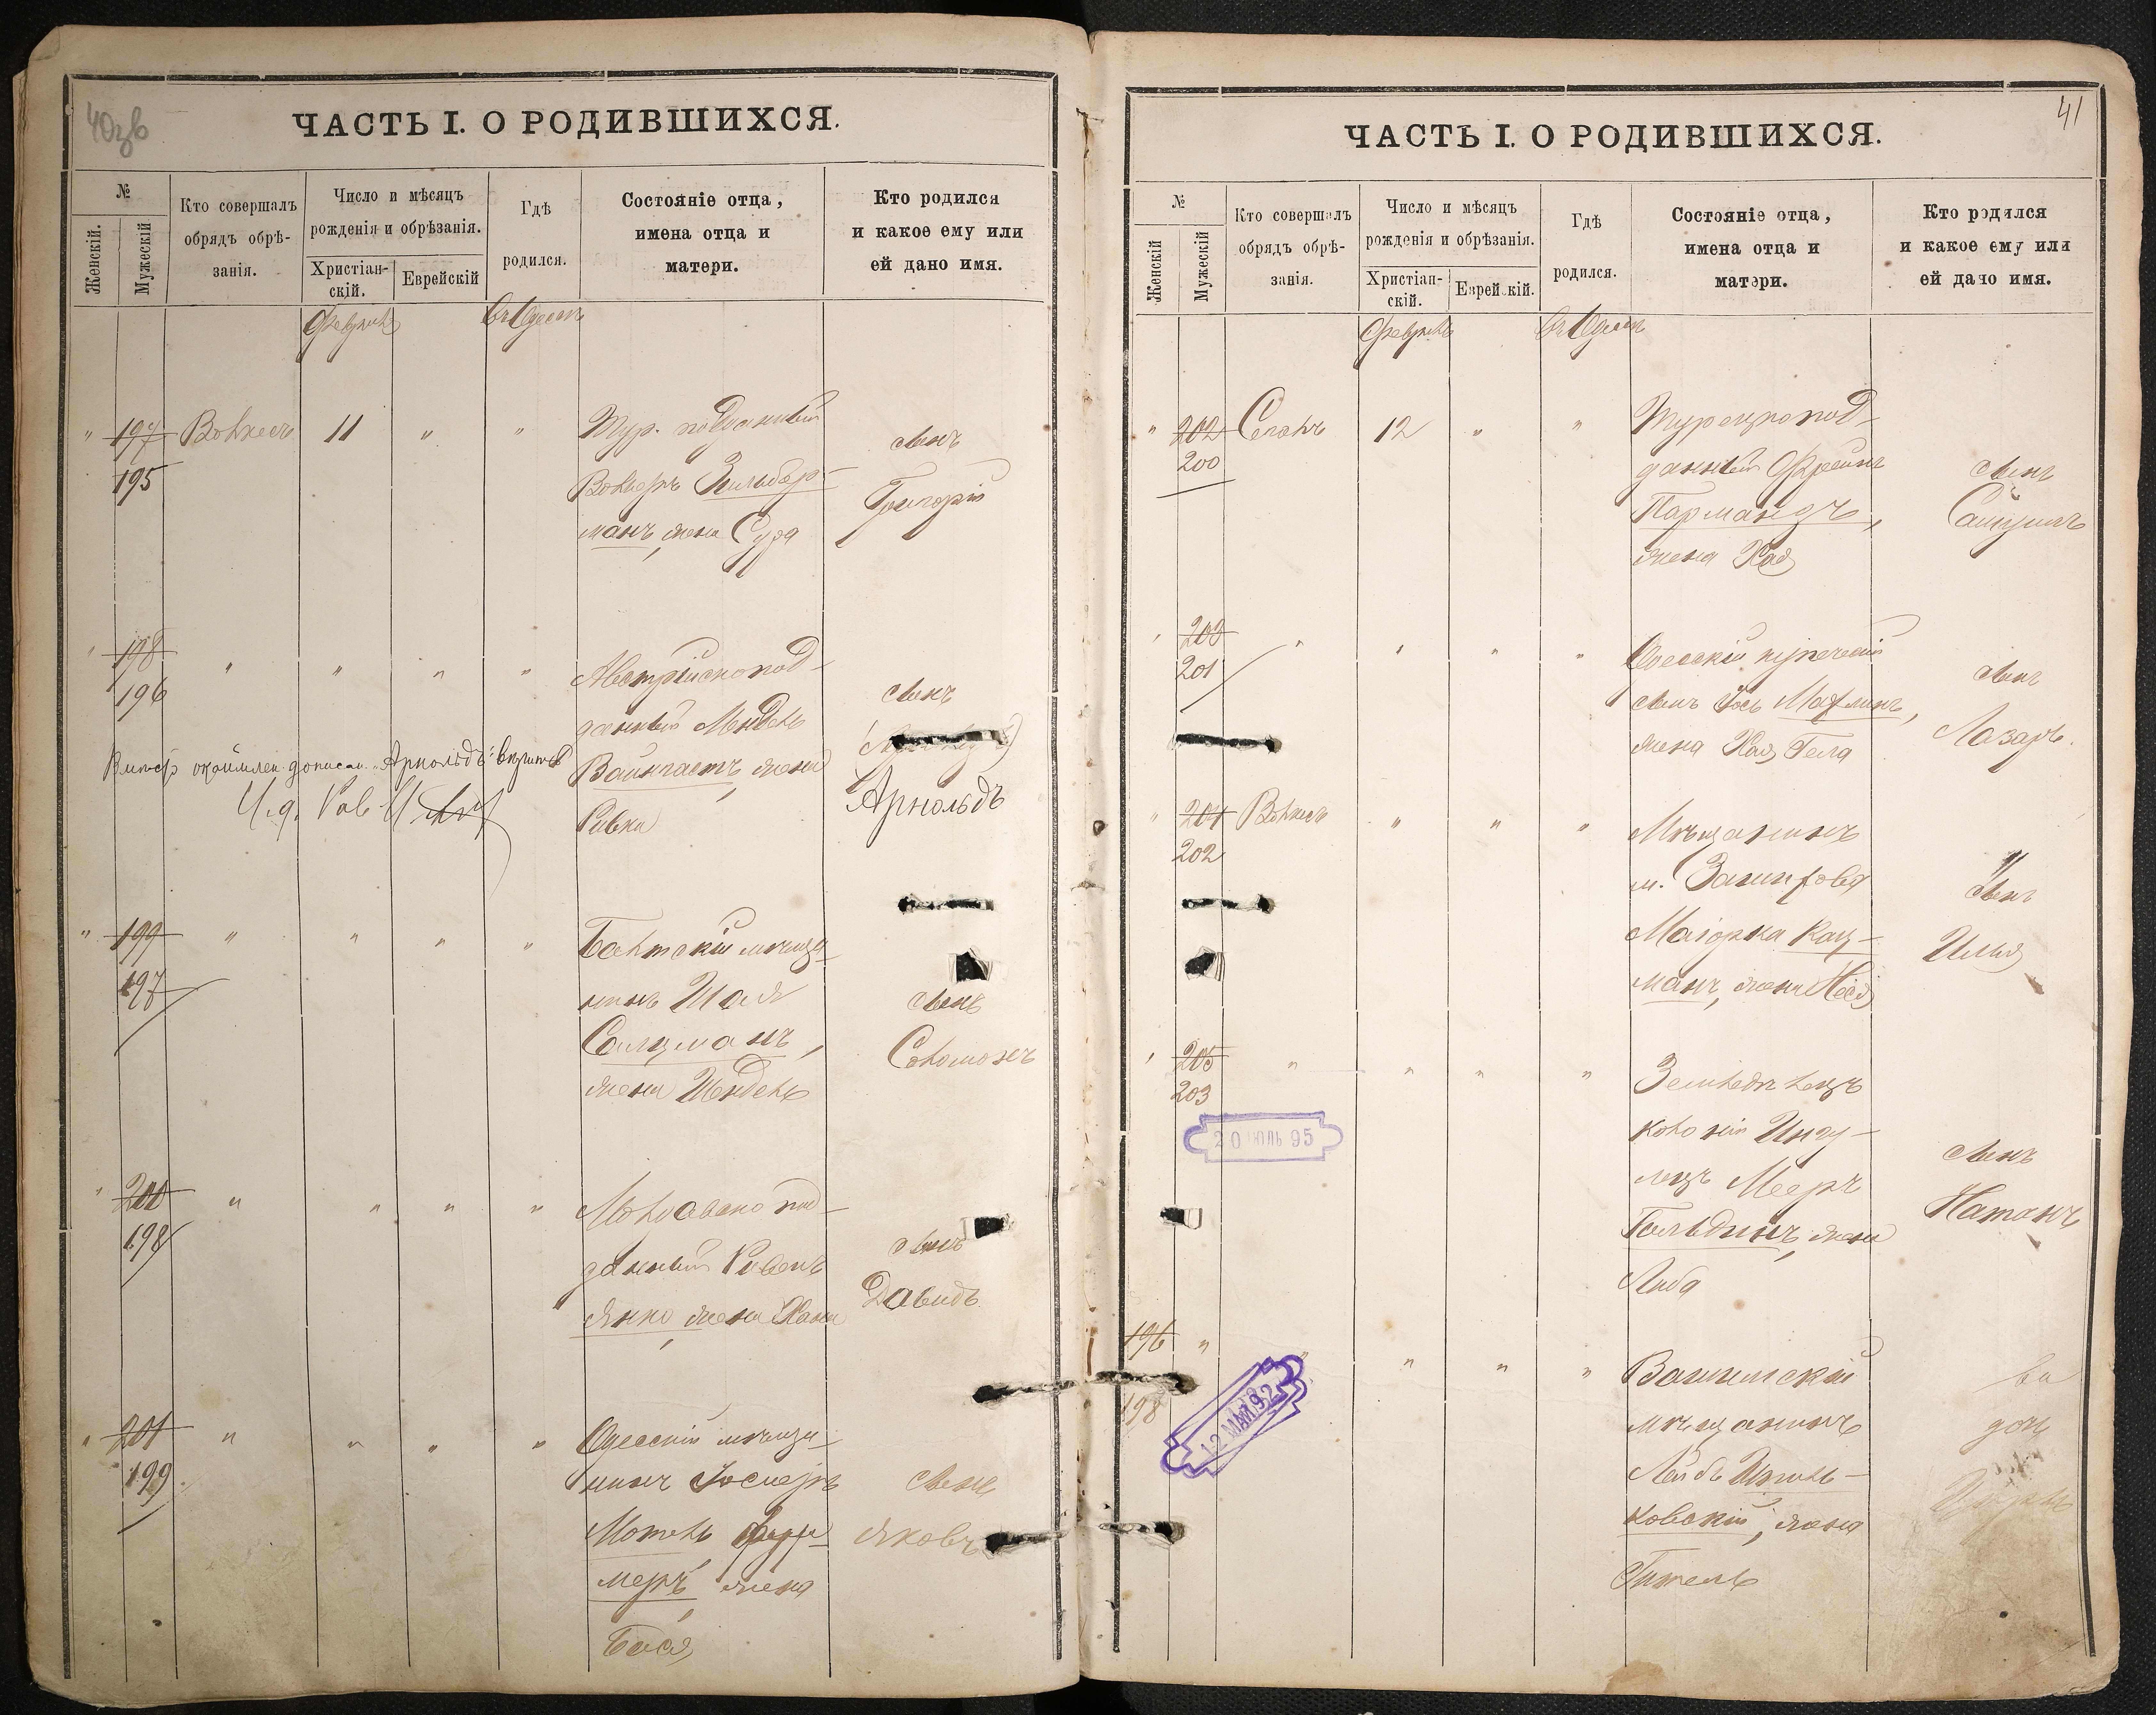 40зв
ЧАСТЬ I. О РОДИВШИХСЯ.
№
Женскій.
Мужескій
Кто совершалъ
обрядъ обрѣ-
занія.
Число и мѣсяцъ
рожденія и обрѣзанія.
Христіан-
скій.
Еврейскій
Гдѣ
родился.
Состояніе отца,
имена отца и
матери.
Кто родился
и какое ему или
ей дано имя.
Февраль
въ Одессѣ
" 197 11 " " Тур. подданный
195
Зильбер-
манъ, жена Сура
сынъ
Григорій
" 198 " " " " Австрійскопод-
196
данный Мендель
Вайнгастъ, жена
Ривка
сынъ
Арнольдъ
дописан. "Арнольдъ"
И.д. Рав.
" 199 " " " " Балтскій мѣща-
197
нинъ Шая
Салцманъ,
жена Шендель
сынъ
Соломонъ
" 200 " " " " Молдавскопод-
198
данный Рувенъ
Янко, жена Хана
сынъ
Давидъ
" 201 " " " " Одесскій мѣща-
199
нинъ Іосифъ
Мотель
меръ, жена
Бася
сынъ
Яковъ
41
ЧАСТЬ I. О РОДИВШИХСЯ.
№
Женскій
Мужескій
Кто совершалъ
обрядъ обрѣ-
занія.
Число и мѣсяцъ
рожденія и обрѣзанія.
Христіан-
скій.
Еврейскій.
Гдѣ
родился.
Состояніе отца,
имена отца и
матери.
Кто родился
и какое ему или
ей дано имя.
Февраль
въ Одессѣ
" 202 12 " " Турецкопод-
200
данный Фроимъ
Пармандъ,
жена Хая
сынъ
Самуилъ
" 203 " " " " Одесскій купеческій
201
сынъ Іось
жена Хая Гела
сынъ
Лазарь.
" 204 " " " Мѣщанинъ
202
м.
Маіорка Кац-
манъ, жена
сынъ
Илья
" 205 " " " " Земледѣлецъ
203
колоніи Ингу-
лецъ Мееръ
Гольдинъ, жена
Либа
сынъ
Натанъ
20 ІЮЛЬ 95
196 " " " " "
198
мѣщанинъ
Лейбъ
ковскій, жена
Гитель
дочь
12 МАЙ 92